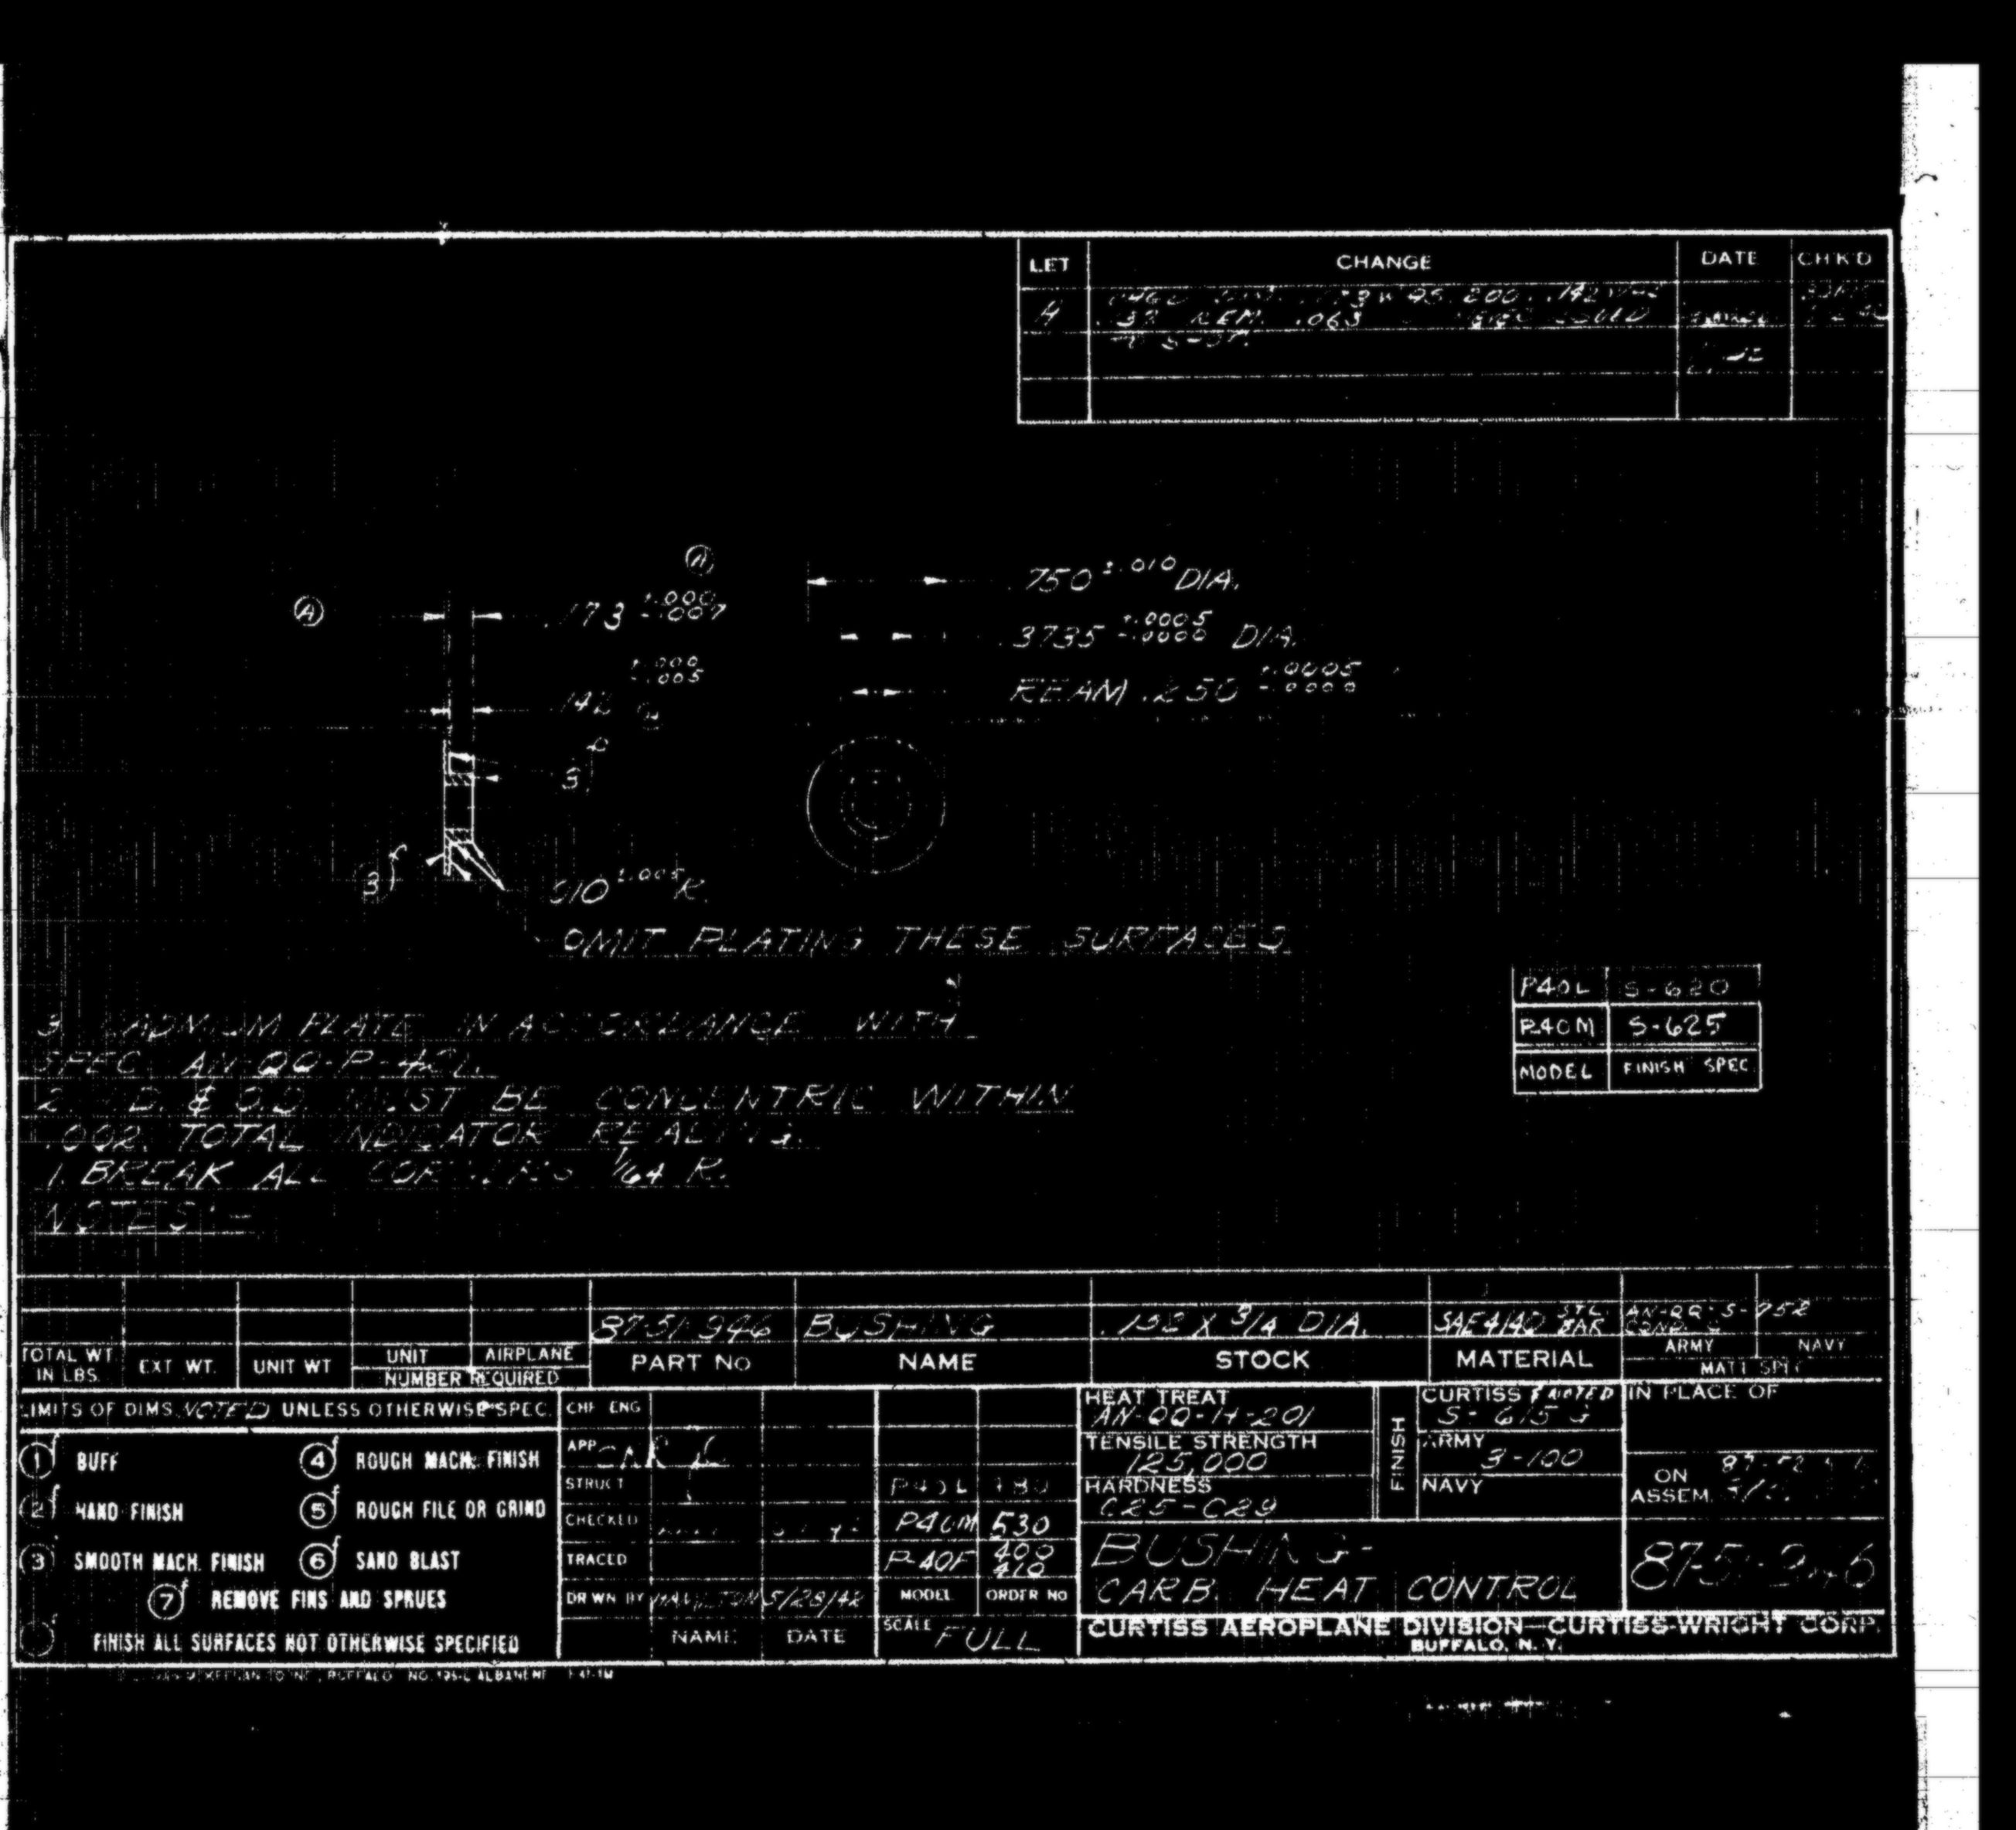 LET CHANGE DATE CHK'D
A .173 WAS .200 .142 WAS
REM. .063
Ⓐ
Ⓐ .173 +.000 -.007
.142 +.000 -.005
.750 ±.010 DIA.
.3735 +.0005 -.0000 DIA.
REAM .250 +.0005 -.0000
3 f
3 f
.010 ±.005 R.
OMIT PLATING THESE SURFACES
P40L S-620
P40M S-625
MODEL FINISH SPEC
3. CADMIUM PLATE IN ACCORDANCE WITH
SPEC. AN-QQ-P-421.
2. I.D. & O.D. MUST BE CONCENTRIC WITHIN
.002 TOTAL INDICATOR READING.
1. BREAK ALL CORNERS 1/64 R.
NOTES:-
87-51-946 BUSHING 3/4 DIA. SAE4140 STL. BAR AN-QQ-S-752
TOTAL WT. IN LBS. EXT WT. UNIT WT UNIT AIRPLANE NUMBER REQUIRED PART NO NAME STOCK MATERIAL ARMY NAVY MAT'L SPEC
LIMITS OF DIMS. NOTED UNLESS OTHERWISE SPEC.
1 f BUFF
2 f HAND FINISH
3 f SMOOTH MACH. FINISH
4 f ROUGH MACH. FINISH
5 f ROUGH FILE OR GRIND
6 f SAND BLAST
7 f REMOVE FINS AND SPRUES
FINISH ALL SURFACES NOT OTHERWISE SPECIFIED
CHF ENG
APP
STRUCT
CHECKED
TRACED
DRWN BY HAMILTON 5/28/42
NAME DATE
P40L
P40M 530
P-40F 400 410
MODEL ORDER NO
SCALE FULL
HEAT TREAT
AN-QQ-H-201
TENSILE STRENGTH
125,000
HARDNESS
C25-C29
FINISH
CURTISS & NOTED
S-615
ARMY
3-100
NAVY
IN PLACE OF
ON ASSEM.
BUSHING-
CARB. HEAT CONTROL
87-51-946
CURTISS AEROPLANE DIVISION—CURTISS-WRIGHT CORP.
BUFFALO, N. Y.